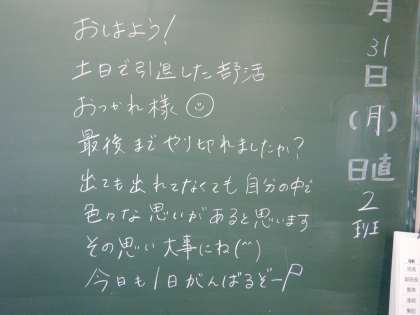 おはよう!
土日で引退した部活
おつかれ様☺
最後までやり切れましたか?
出ても出れてなくても自分の中で
色々な思いがあると思います
その思い大事にね(^^)
今日も1日がんばるぞー
月
31
日
(月)
日直
2
班